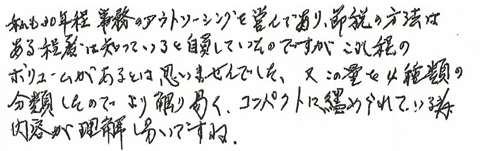 私も30年程 事務のアウトソーシングを営んでおり、節税の方法は
ある程度は知っていると自負していたのですが これ程の
ボリュームがあるとは思いませんでした、又この量を4種類の
分類したので より解り易く、コンパクトに纏められている為
内容が理解し易いですね.